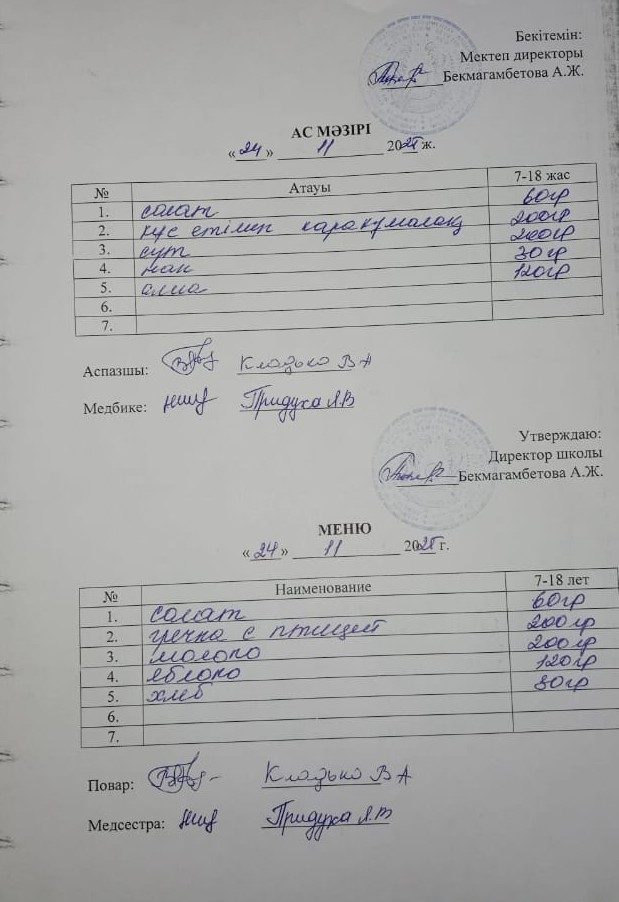 Бекітемін:
Мектеп директоры
Бекмагамбетова А.Ж.
АС МӘЗІРІ
« 24 » 11 2025 ж.
№ Атауы 7-18 жас
1. салат 60гр
2. құс етімен қарақұмалақ 200гр
3. сүт 200гр
4. нан 30гр
5. алма 120гр
6.
7.
Аспазшы: Кладько В А
Медбике: Придуха Я.В
Утверждаю:
Директор школы
Бекмагамбетова А.Ж.
МЕНЮ
« 24 » 11 2025 г.
№ Наименование 7-18 лет
1. салат 60гр
2. гречка с птицей 200гр
3. молоко 200гр
4. яблоко 120гр
5. хлеб 30гр
6.
7.
Повар: Кладько В А
Медсестра: Придуха Я.В